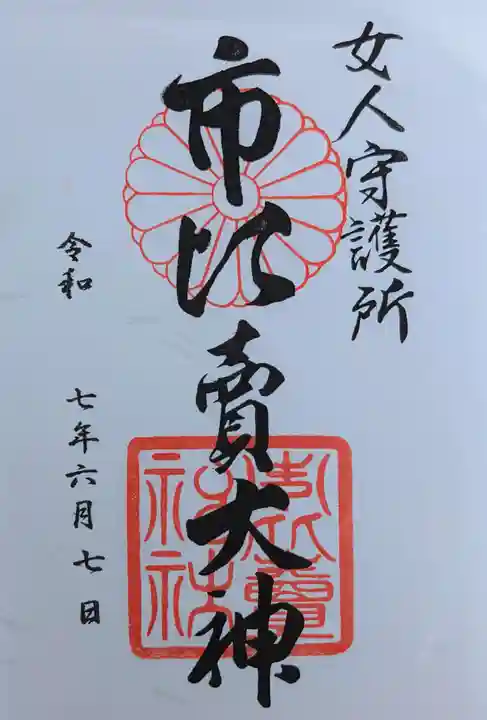 女人守護所
市比賣大神
令和 七年六月七日
市比賣
神社